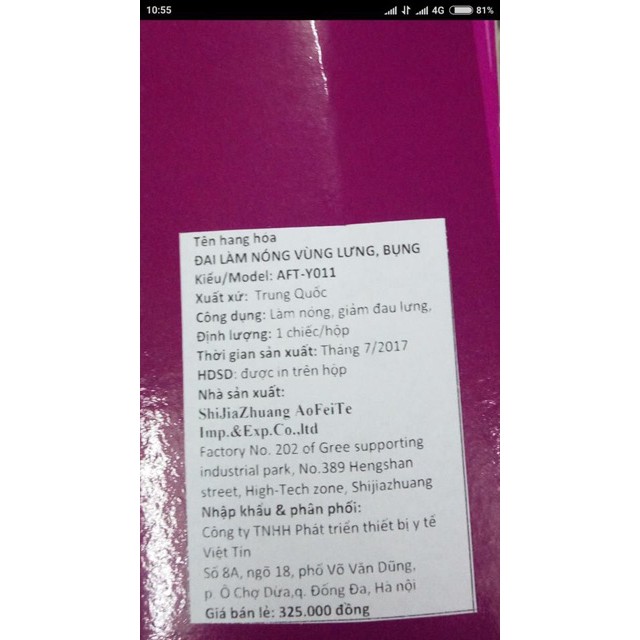 10:55
4G
81%
Tên hang hóa
ĐAI LÀM NÓNG VÙNG LƯNG, BỤNG
Kiểu/Model: AFT-Y011
Xuất xứ: Trung Quốc
Công dụng: Làm nóng, giảm đau lưng,
Định lượng: 1 chiếc/hộp
Thời gian sản xuất: Tháng 7/2017
HDSD: được in trên hộp
Nhà sản xuất:
ShiJiaZhuang AoFeiTe
Imp.&Exp.Co.,ltd
Factory No. 202 of Gree supporting
industrial park, No.389 Hengshan
street, High-Tech zone, Shijiazhuang
Nhập khẩu & phân phối:
Công ty TNHH Phát triển thiết bị y tế
Việt Tin
Số 8A, ngõ 18, phố Võ Văn Dũng,
p. Ô Chợ Dừa,q. Đống Đa, Hà nội
Giá bán lẻ: 325.000 đồng